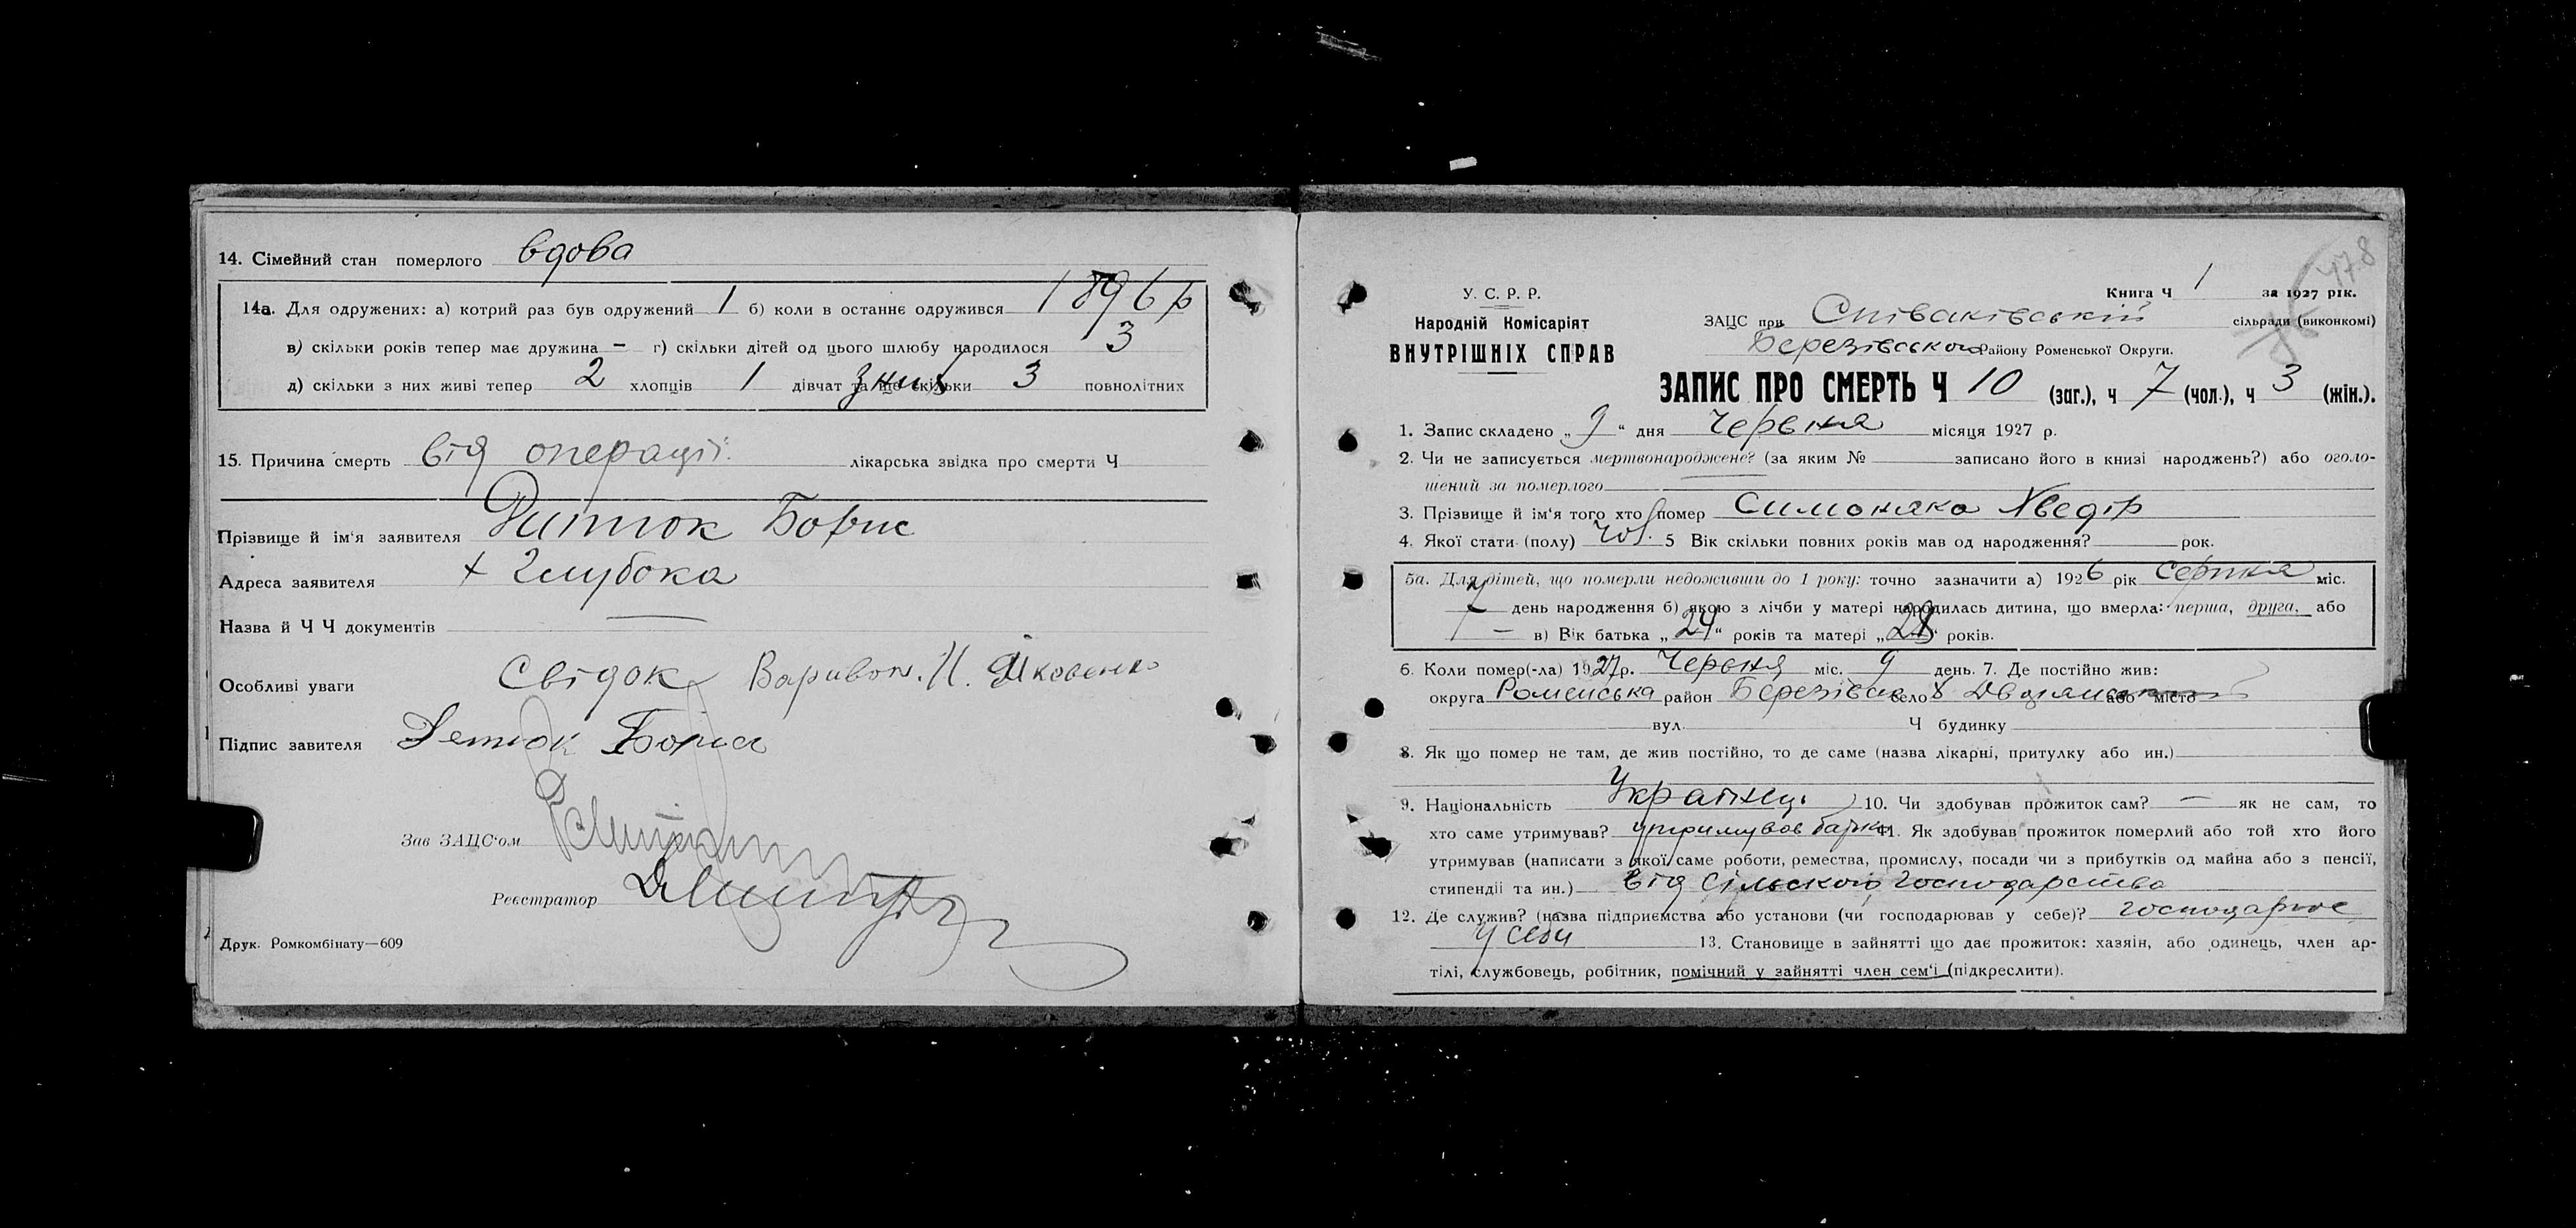 14. Сімейний стан померлого вдова
14а. Для одружених: а) котрий раз був одружений 1 б) коли в останнє одружився 1896 р
в) скільки років тепер має дружина – г) скільки дітей од цього шлюбу народилося 3
д) скільки з них живі тепер 2 хлопців 1 дівчат та ще скільки з них 3 повнолітних
15. Причина смерть від операції. лікарська звідка про смерти Ч
Прізвище й ім'я заявителя Дитюк Борис
Адреса заявителя х Глубока
Назва й Ч Ч документів —
Особливі уваги Свідок Варивон. Н. Яковенко
Підпис завителя Детюк Борис
Зав ЗАЦС'ом
Реєстратор
Друк. Ромкомбінату—609
478
У. С. Р. Р.
Народній Комісаріят
ВНУТРІШНІХ СПРАВ
Книга Ч 1 за 1927 рік.
ЗАЦС при Співаківській сільради (виконкомі)
Березівського Району Роменської Округи.
ЗАПИС ПРО СМЕРТЬ Ч 10 (заг.), ч 7 (чол.), ч 3 (жін.).
1. Запис складено „9“ дня Червня місяця 1927 р.
2. Чи не записується мертвонароджене? (за яким № записано його в книзі народжень?) або оголо-
шений за померлого —
3. Прізвище й ім'я того хто помер Симоняка Хведір
4. Якої стати (полу) чол. 5 Вік скільки повних років мав од народження? рок.
5а. Для дітей, що померли недоживши до 1 року: точно зазначити а) 1926 рік Серпня міс.
7 день народження б) якою з лічби у матері народилась дитина, що вмерла: перша, друга, або
– в) Вік батька „24“ років та матері „28“ років.
6. Коли помер(-ла) 1927 р. Червня міс. 9 день. 7. Де постійно жив:
округа Роменська район Березівск село х або місто
вул. Ч будинку
8. Як що помер не там, де жив постійно, то де саме (назва лікарні, притулку або ин.)
9. Національність Українець 10. Чи здобував прожиток сам? – як не сам, то
хто саме утримував? утримував батько 11. Як здобував прожиток померлий або той хто його
утримував (написати з якої саме роботи, ремества, промислу, посади чи з прибутків од майна або з пенсії,
стипендії та ин.) від сільского господарства
12. Де служив? (назва підприємства або установи (чи господарював у себе)? господарює
у себи 13. Становище в зайнятті що дає прожиток: хазяін, або одинець, член ар-
тілі, службовець, робітник, помічний у зайнятті член сем'і (підкреслити).